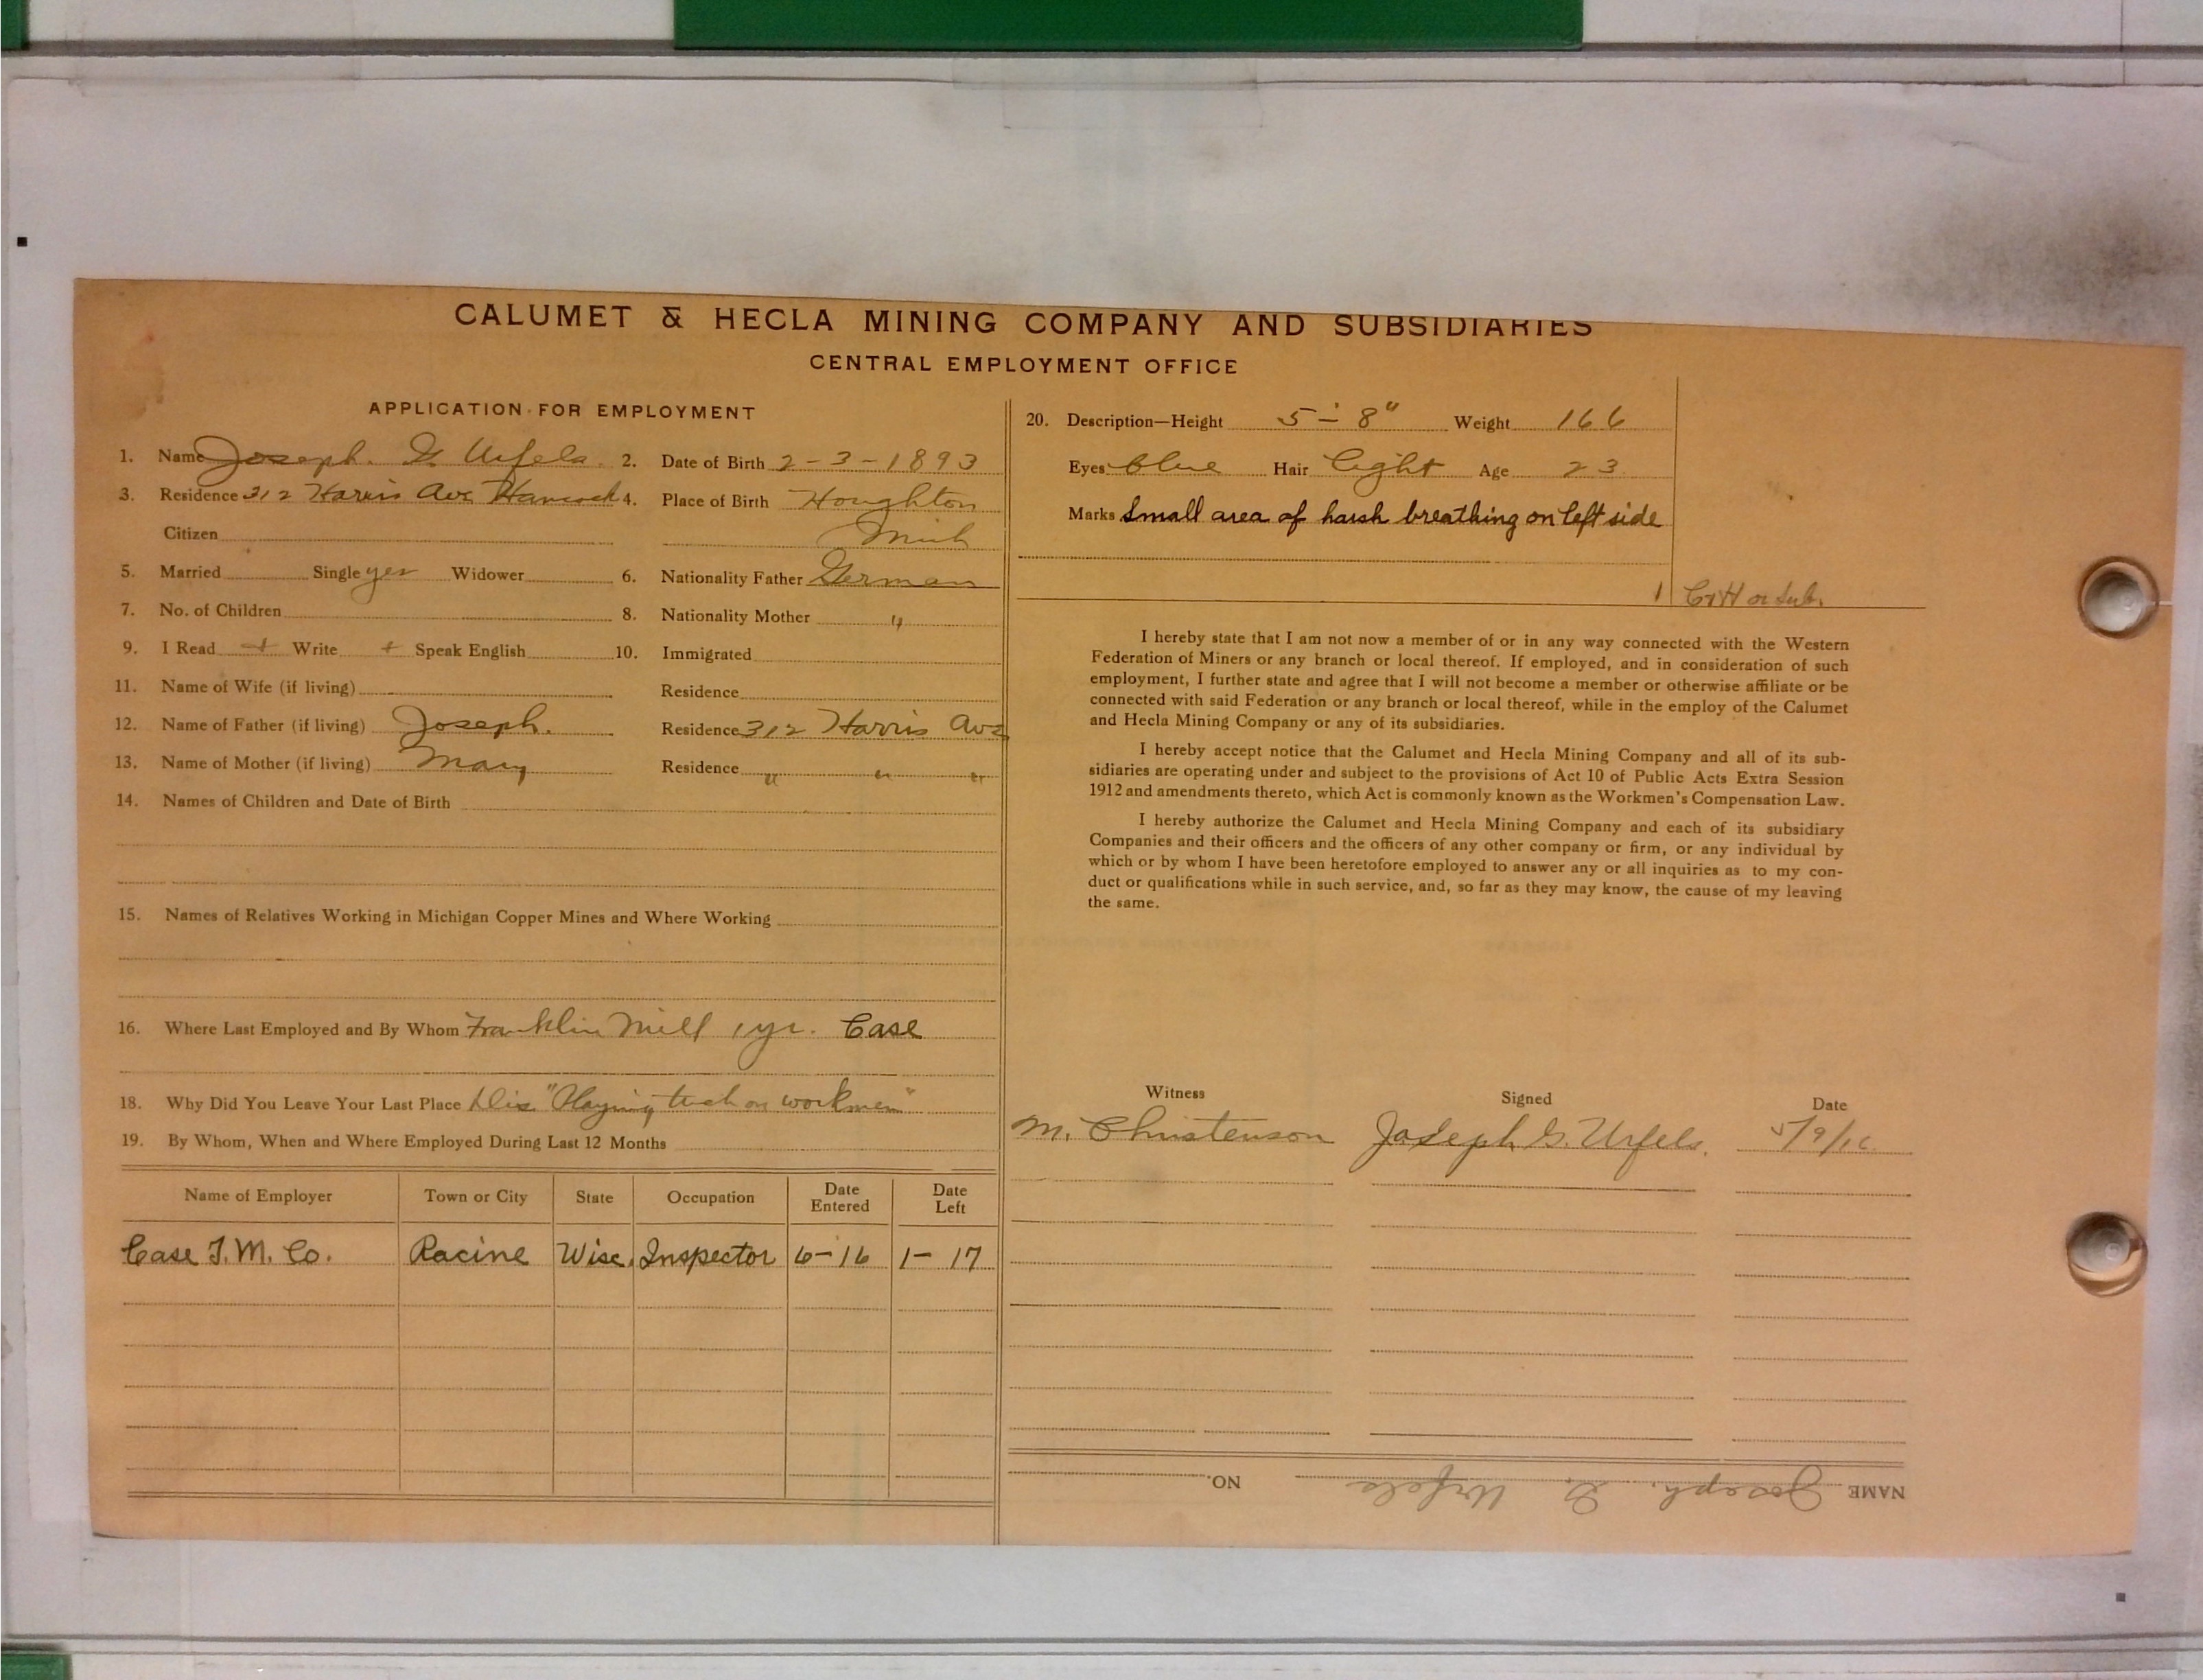 CALUMET & HECLA MINING COMPANY AND SUBSIDIARIES
CENTRAL EMPLOYMENT OFFICE
APPLICATION FOR EMPLOYMENT
1. Name Joseph. G. Urfels. 2. Date of Birth 2-3-1893
3. Residence 312 Harris Ave Hancock 4. Place of Birth Houghton
Citizen Mich
5. Married Single yes Widower 6. Nationality Father German
7. No. of Children 8. Nationality Mother "
9. I Read + Write + Speak English 10. Immigrated
11. Name of Wife (if living) Residence
12. Name of Father (if living) Joseph. Residence 312 Harris Ave
13. Name of Mother (if living) Mary Residence " " "
14. Names of Children and Date of Birth
15. Names of Relatives Working in Michigan Copper Mines and Where Working
16. Where Last Employed and By Whom Franklin Mill 1 yr. Case
18. Why Did You Leave Your Last Place Dis "Playing on workmen"
19. By Whom, When and Where Employed During Last 12 Months
Name of Employer Town or City State Occupation Date Entered Date Left
Case T. M. Co. Racine Wisc. Inspector 6-16 1-17
20. Description—Height 5-8" Weight 166
Eyes blue Hair light Age 23
Marks Small area of harsh breathing on left side
1 C&H or Sub.
I hereby state that I am not now a member of or in any way connected with the Western
Federation of Miners or any branch or local thereof. If employed, and in consideration of such
employment, I further state and agree that I will not become a member or otherwise affiliate or be
connected with said Federation or any branch or local thereof, while in the employ of the Calumet
and Hecla Mining Company or any of its subsidiaries.
I hereby accept notice that the Calumet and Hecla Mining Company and all of its sub-
sidiaries are operating under and subject to the provisions of Act 10 of Public Acts Extra Session
1912 and amendments thereto, which Act is commonly known as the Workmen's Compensation Law.
I hereby authorize the Calumet and Hecla Mining Company and each of its subsidiary
Companies and their officers and the officers of any other company or firm, or any individual by
which or by whom I have been heretofore employed to answer any or all inquiries as to my con-
duct or qualifications while in such service, and, so far as they may know, the cause of my leaving
the same.
Witness Signed Date
M. Christenson Joseph G. Urfels. 5/9/16
NAME Joseph. G. Urfels NO.